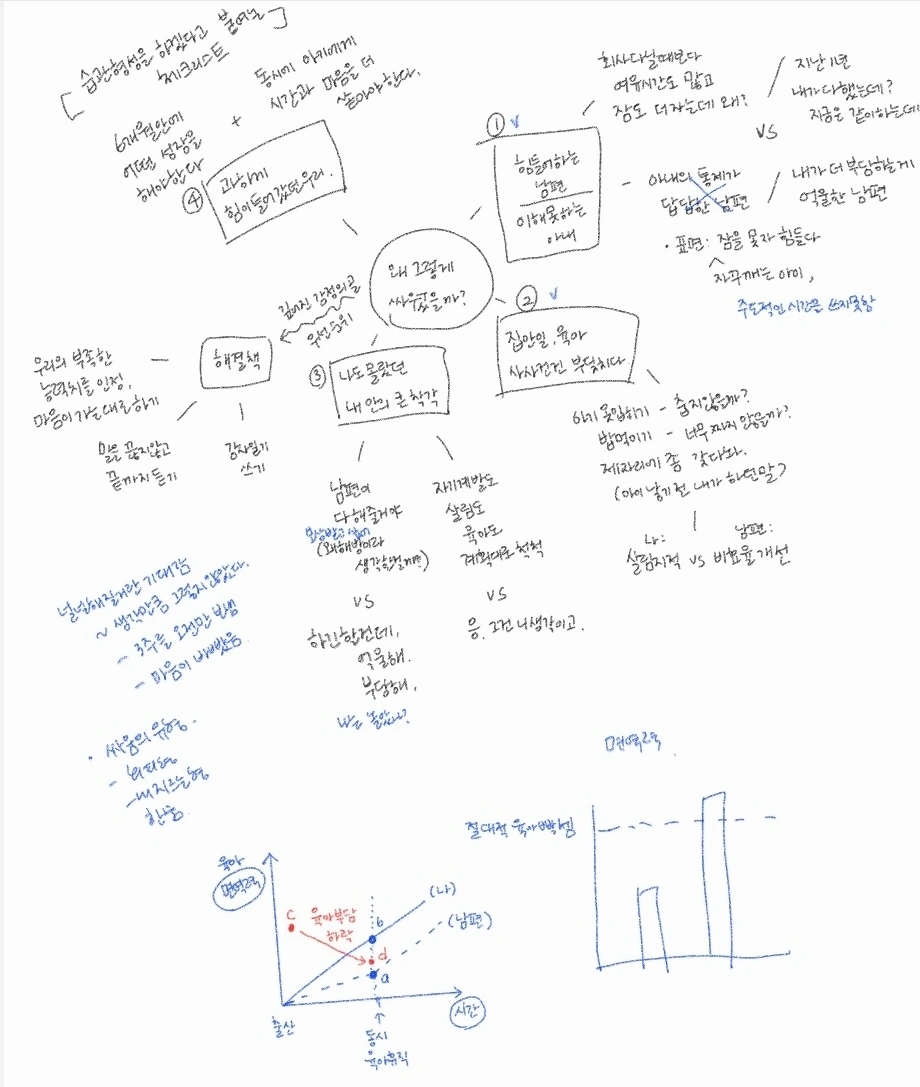 왜 그렇게
싸웠을까?
①
힘들어하는
남편
이해못하는
아내
회사다닐때보다
여유시간도 많고
잠도 더자는데 왜?
지난 1년
내가 다했는데?
지금은 같이하는데
vs
아내의 통제가
답답한 남편
내가 더 부당하는게
억울한 남편
· 표면: 잠을 못자 힘들다
자꾸깨는 아이,
주도적인 시간을 쓰지못함
②
집안일, 육아
사사건건 부딪치다
아기 옷입히기 - 춥지않을까?
밥먹이기 - 너무 짜지 않을까?
제자리에 좀 갖다놔.
(아이 낳기전 내가 하던말)
나:
남편:
살림지적 vs 비효율 개선
③
나도 몰랐던
내 안의 큰 착각
남편이
다해줄거야
보상받고 싶어
생각했던거야)
vs
하긴할건데,
억울해.
부당해,
나는 놀았나?
자기계발도
살림도
육아도
계획대로 척척
vs
응. 그건 니생각이고.
④
과하게
힘이들어갔던우리.
[습관형성을 하겠다고 붙여놓
체크리스트]
6개월안에
어떤 성장을
해야한다
+
동시에 아기에게
시간과 마음을 더
쏟아야한다.
깊어진 감정의골
우선순위
해결책
우리의 부족한
능력치를 인정,
마음이 가는대로하기
말을 끊지않고
끝까지 듣기
감사일기
쓰기
널널해질거란 기대감
~ 생각만큼 그렇지않았다.
- 3주를 오전만 보냄
- 마음이 바빴음
· 싸움의 유형.
- 회피형
- 내지르는형
한숨
육아
면역력
c
육아부담
하락
b
d
a
(나)
(남편)
시간
출산
동시
육아휴직
면역력
절대적 육아빡셈